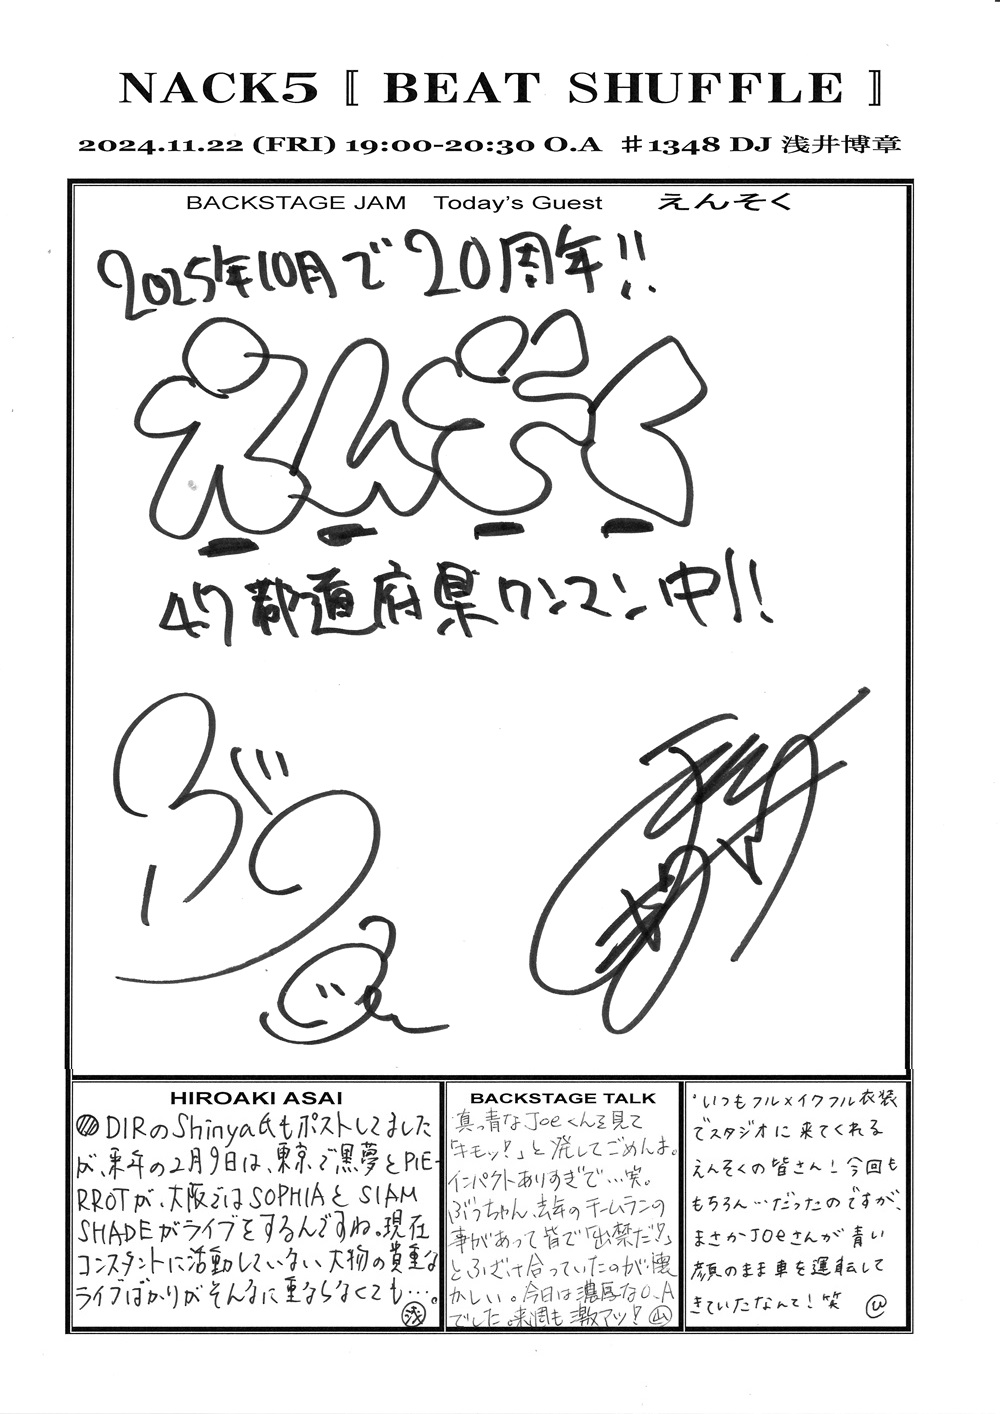 NACK5 〚 BEAT SHUFFLE 〛
2024.11.22 (FRI) 19:00-20:30 O.A ♯1348 DJ 浅井博章
BACKSTAGE JAM Today's Guest えんそく
2025年10月で20周年!!
えんそく
47都道府県ワンマン中!!
ぶう
Joe
HIROAKI ASAI
DIRのShinya氏もポストしてました
が、来年の2月9日は、東京で黒夢とPIE-
RROTが、大阪ではSOPHIAとSIAM
SHADEがライブをするんですね。現在
コンスタントに活動していない大物の貴重な
ライブばかりがそんなに重ならなくても…。
浅
BACKSTAGE TALK
真っ青なJoeくんを見て
「キモッ!」と発してごめんよ。
インパクトありすぎで…笑。
ぶうちゃん、去年のチームランの
事があって皆で「出禁だ!?」
とふざけ合っていたのが懐
かしい。今日は濃厚なO.A
でした。来週も激アツ! 山
いつもフル×イクフル衣装
でスタジオに来てくれる
えんそくの皆さん!今回も
もちろん…だったのですが、
まさかJOeさんが青い
顔のまま車を運転して
きていたなんて!笑 ひ